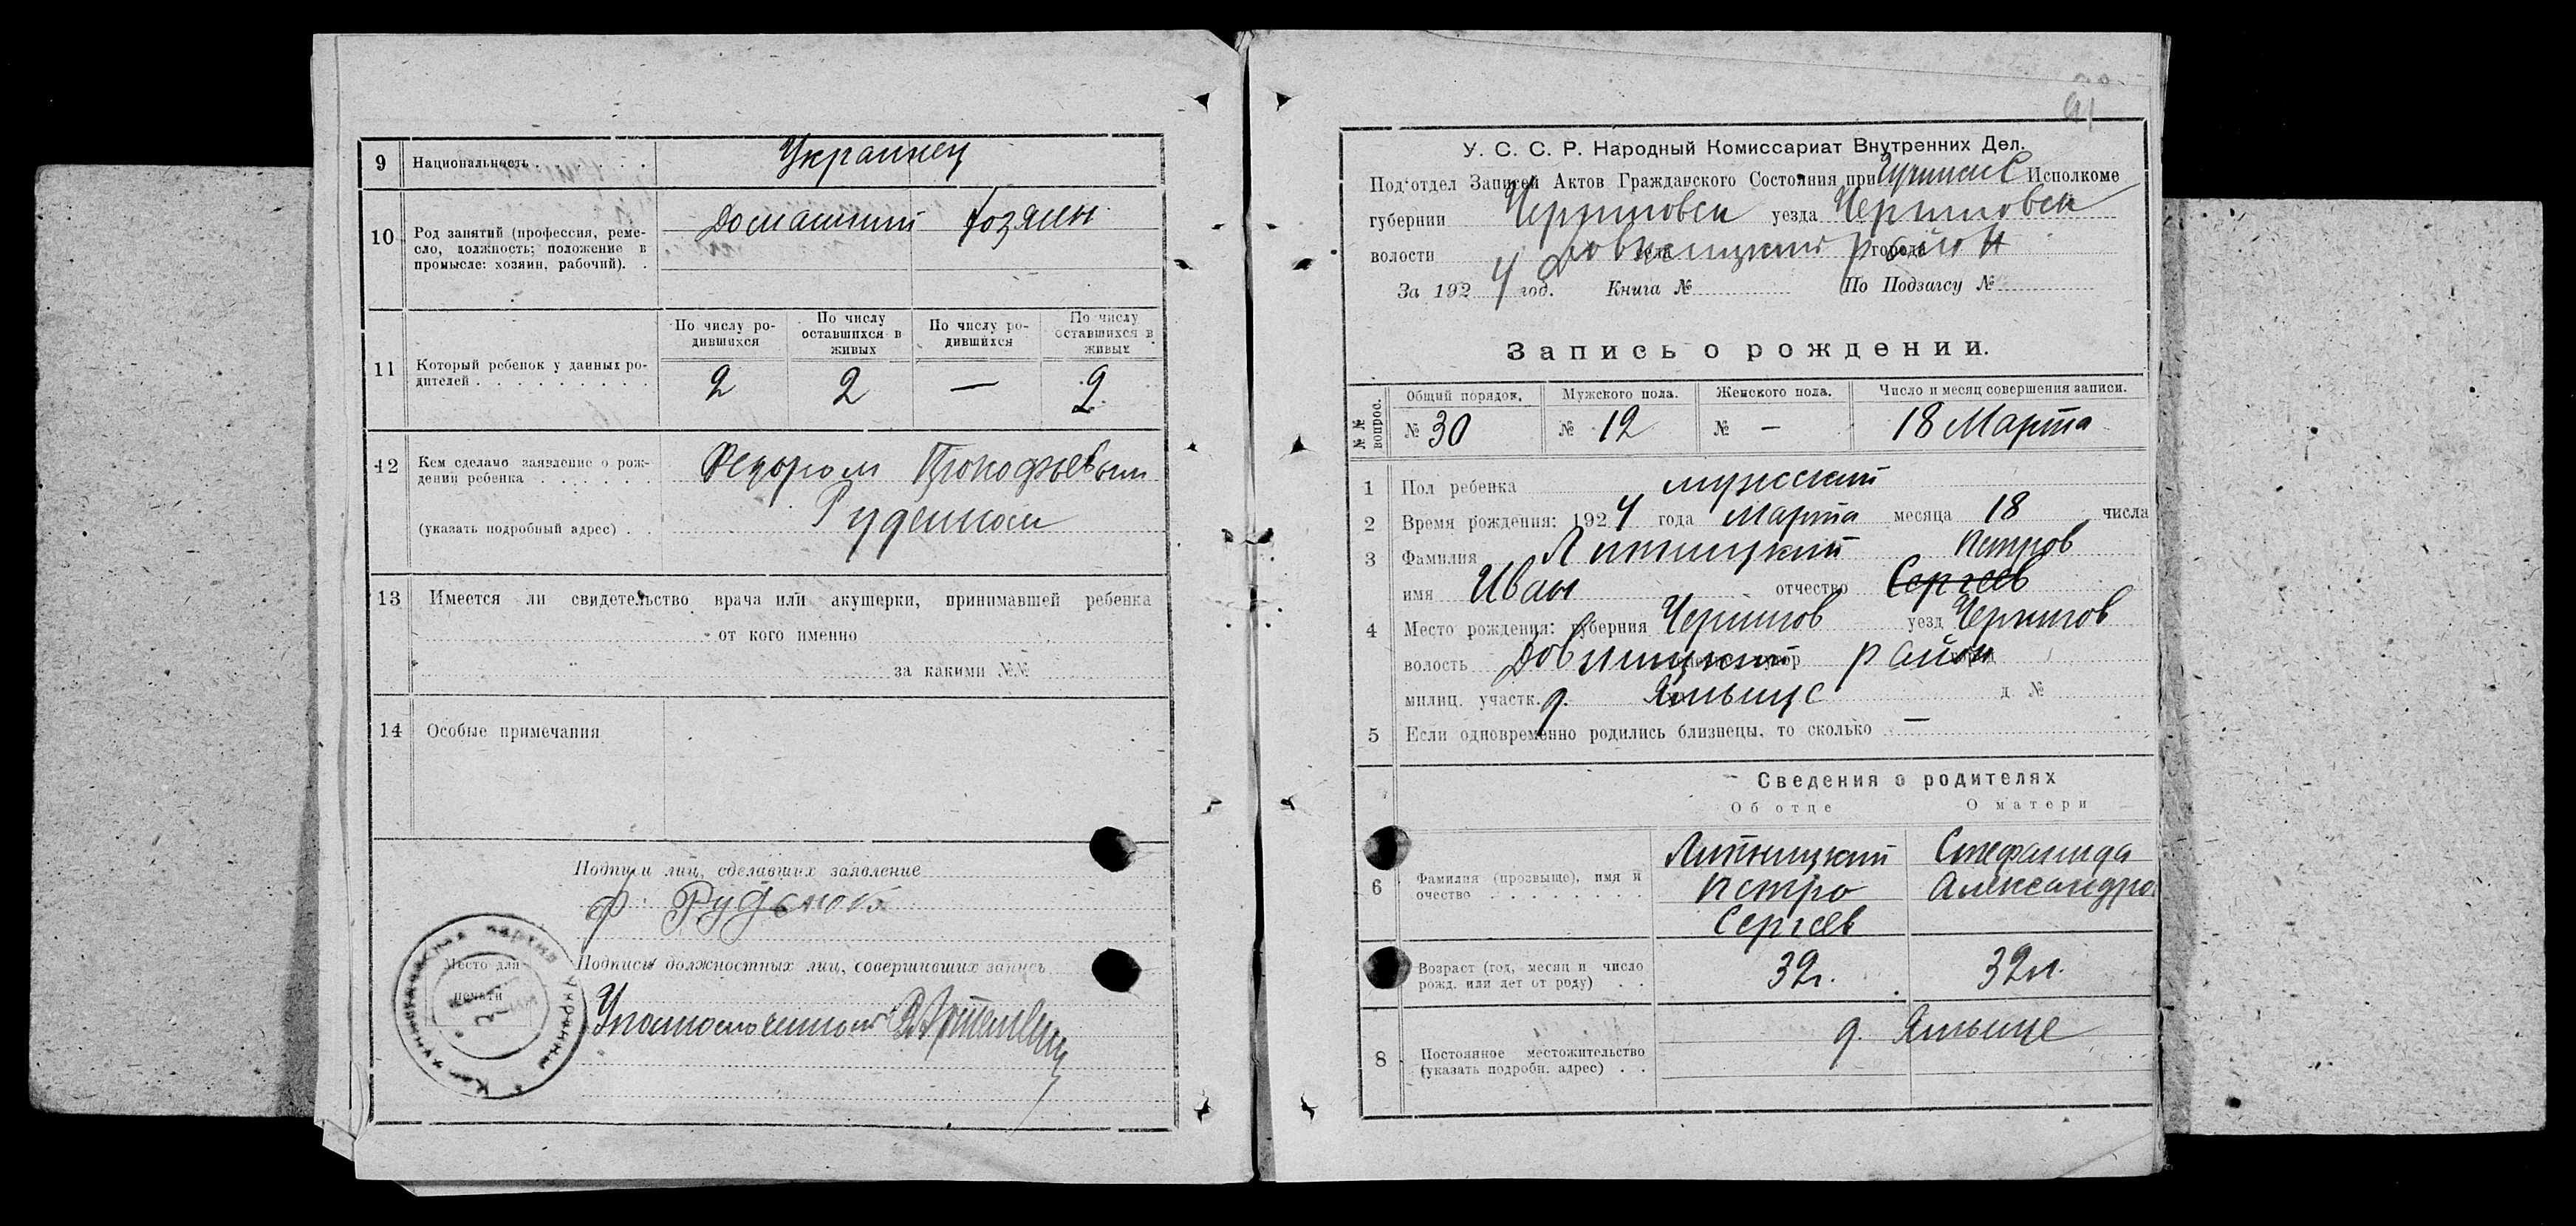 9 Национальность . . . . Украинец
10 Род занятий (профессия, реме-
сло, должность; положение в
промысле: хозяин, рабочий). .
Домашний Хозяин
По числу ро-
дившихся
По числу
оставшихся в
живых
По числу ро-
дившихся
По числу
оставшихся в
живых
11 Который ребенок у данных ро-
дителей . . . . . . . . .
2 2 — 2
12 Кем сделано заявление о рож-
дении ребенка . . . . . .
Федором Прокофьевым
(указать подробный адрес) . .
Руденком
13 Имеется ли свидетельство врача или акушерки, принимавшей ребенка
от кого именно
за какими №№
14 Особые примечания
Подписи лиц, сделавших заявление
Ф. Руденок
Место для
печати
Коммунистическая партия Украины
Подписи должностных лиц, совершивших запись
Уполномоченный
91
У. С. С. Р. Народный Комиссариат Внутренних Дел.
Под'отдел Записей Актов Гражданского Состояния при Исполкоме
губернии Черниговск уезда Черниговск
волости села города район
За 1924 год. Книга № По Подзагсу №
Запись о рождении.
№№ вопрос.
Общий порядок, Мужского пола. Женского пола. Число и месяц совершения записи.
№ 30 № 12 № — 18 Марта
1 Пол ребенка мужский
2 Время рождения: 1924 года Марта месяца 18 числа
3 Фамилия Литницкий Петров
имя Иван отчество Сергеев
4 Место рождения: губерния Чернигов уезд Чернигов
волость район
милиц. участк. д. д. №
5 Если одновременно родились близнецы, то сколько —
Сведения о родителях
Об отце О матери
6 Фамилия (прозвыще), имя и
очество . . . . . . . .
Литницкий
Петро
Сергеев
Стефанида
Александро
Возраст (год, месяц и число
рожд. или лет от роду) . .
32г. 32л.
8 Постоянное местожительство
(указать подробн. адрес) . .
д.